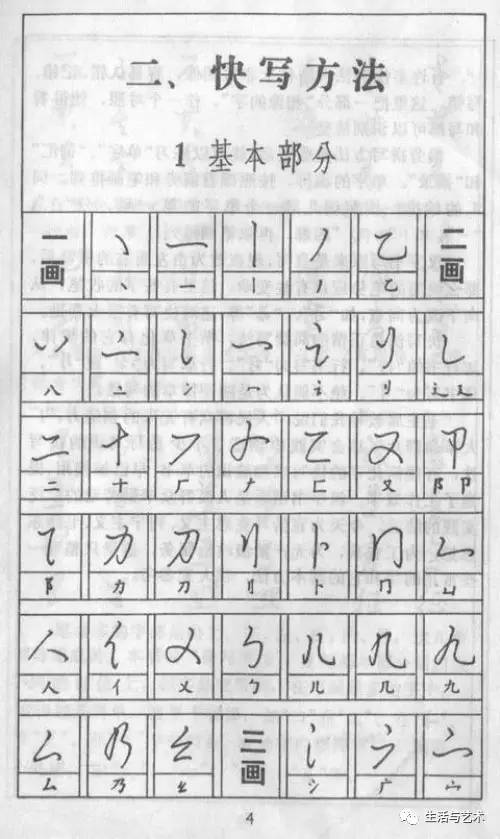 二、快写方法
1 基本部分
一画 丶 一 丨 丿 乙 二画
丶 一 丨 丿 乙
八 亠 讠 刂
二 十 厂 ナ 匚 又
二 十 厂 ナ 匚 又 阝 卩
力 刀 刂 卜 冂 凵
阝 力 刀 刂 卜 冂 凵
人 亻 乂 勹 儿 几 九
人 亻 乂 勹 儿 几 九
厶 乃 三画 氵
厶 乃 氵 广
4
生活与艺术